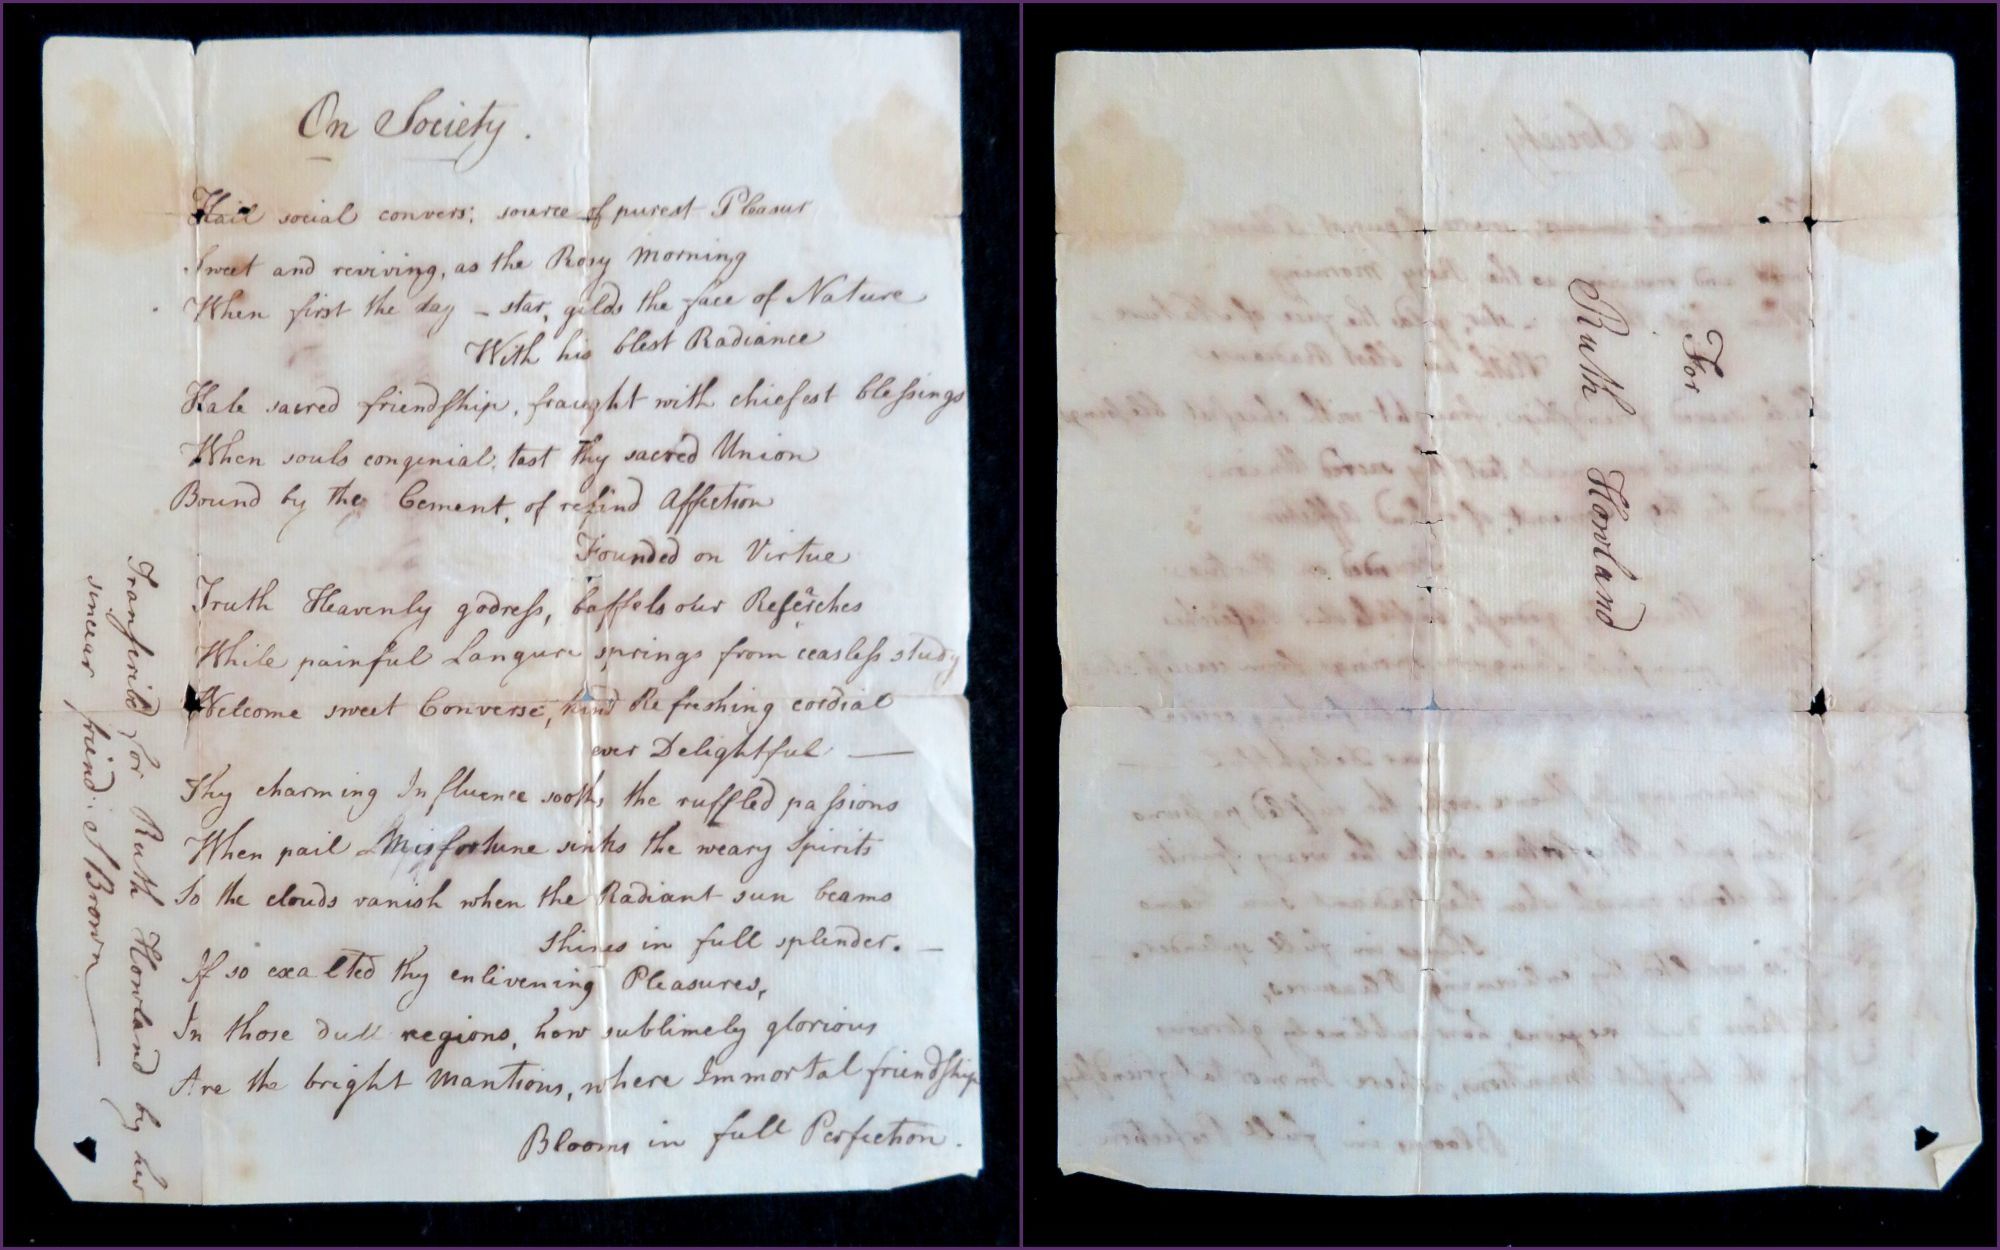 On Society.
Hail social convers; source of purest Pleasur
Sweet and reviving, as the Rosy Morning
When first the day - star, gilds the face of Nature
With his blest Radiance
Hale sacred friendship, fraught with chiefest blessings
When souls congenial, tast thy sacred Union
Bound by the Cement, of refind Affection
Founded on Virtue
Truth Heavenly godress, baffels our Reserches
While painful Langure springs from ceasless study
Welcome sweet Converse, kind Refreshing cordial
ever Delightful —
Thy charming Influence sooths the ruffled passions
When pail Misfortune sinks the weary Spirits
So the clouds vanish when the Radiant sun beams
Shines in full splender. —
If so exalted thy enlivening Pleasures,
In those dull regions, how sublimely glorious
Are the bright Mantions, where Immortal friendship
Blooms in full Perfection.
Transferibd for Ruth Howland by her
sincear friend: S Brown —
For
Ruth Howland